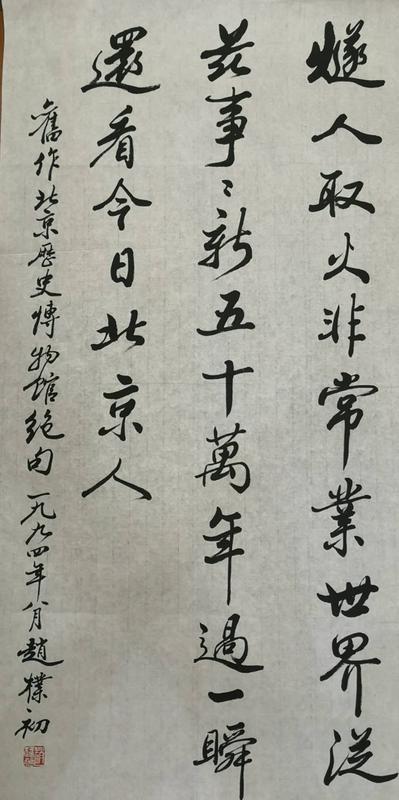 燧人取火非常業世界從
茲事〻新五十萬年過一瞬
還看今日北京人
舊作北京歷史博物館絶句一九九四年八月趙樸初